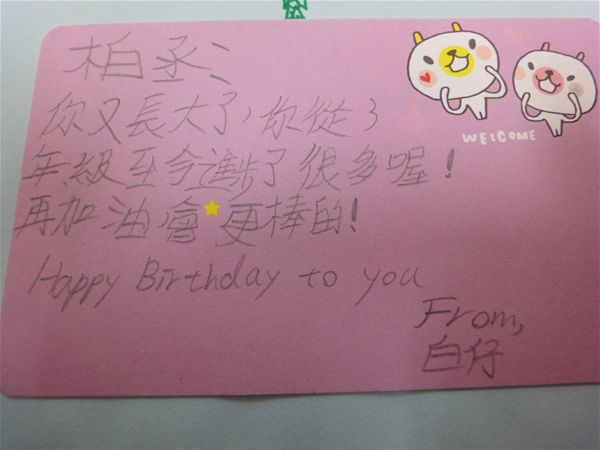 柏丞:
WELCOME
你又長大了,你從3
年級至今進步了很多喔!
再加油會更棒的!
Happy Birthday to you
From,
白仔